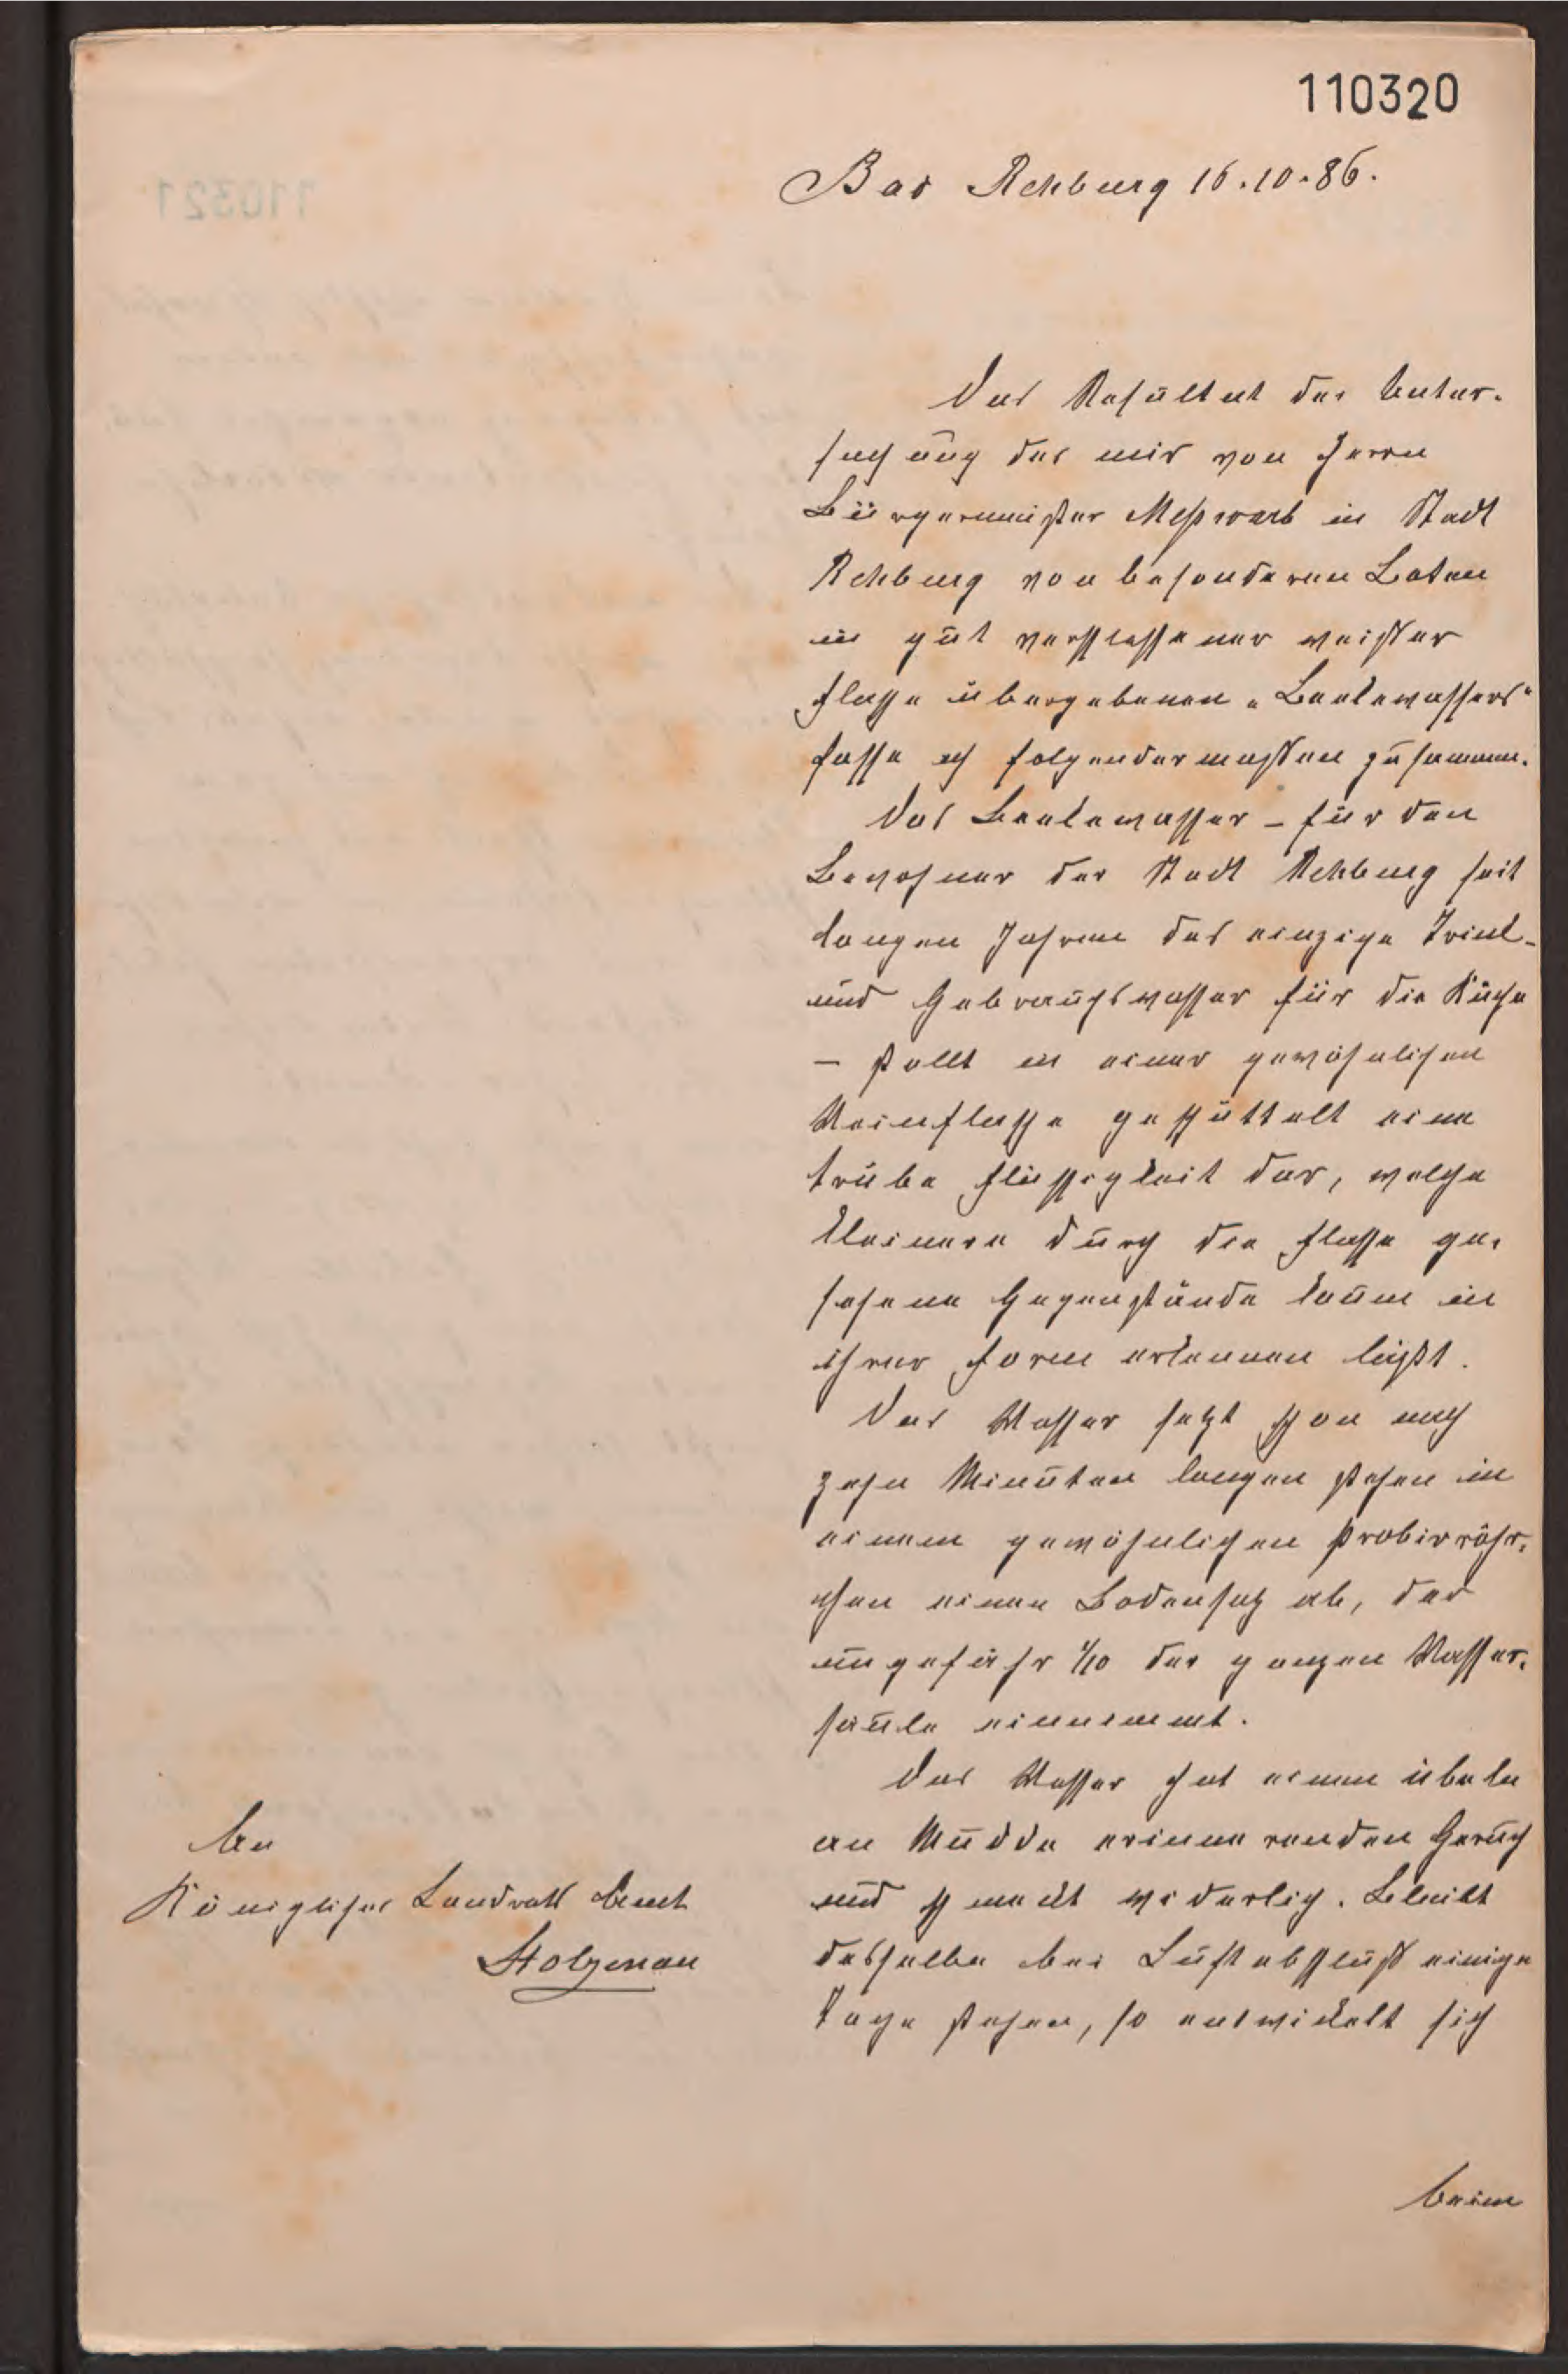 110320
Bad Rehburg 16.10.86.
Das Resultat der Unter-
suchung des mir von Herrn
Bürgermeister Meßwarb in Stadt
Rehburg von besonderen Boten
in gut verschlossener weißer
Flasche übergebenen „Beekewassers"
fasse ich folgendermaßen zusammen.
Das Beekewasser – für den
Bewohner der Stadt Rehburg seit
langen Jahren das einzige Trink-
und Gebrauchswasser für die Küche
– stellt in einer gewöhnlichen
Weinflasche geschüttelt eine
trübe Flüssigkeit dar, welche
kleinere durch die Flasche ge-
sehene Gegenstände kaum in
ihrer Form erkennen läßt.
Das Wasser setzt schon nach
zehn Minuten langen stehen in
einem gewöhnlichen Probirröhr-
chen einen Bodensatz ab, der
ungefähr 1/10 der ganzen Wasser-
säule einnimmt.
Das Wasser hat einen übelen
an Mudde erinnerenden Geruch
und schmeckt widerlich. Bleibt
dasselbe bei Luftabschluß einige
Tage stehen, so entwickelt sich
beim
An
Königliches Landraths Amt
Stolzenau